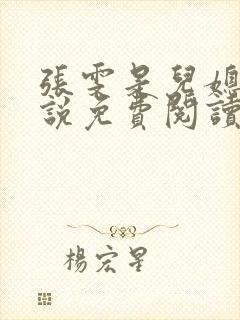 張雯是兒媳
說免費閱讀
楊宏星